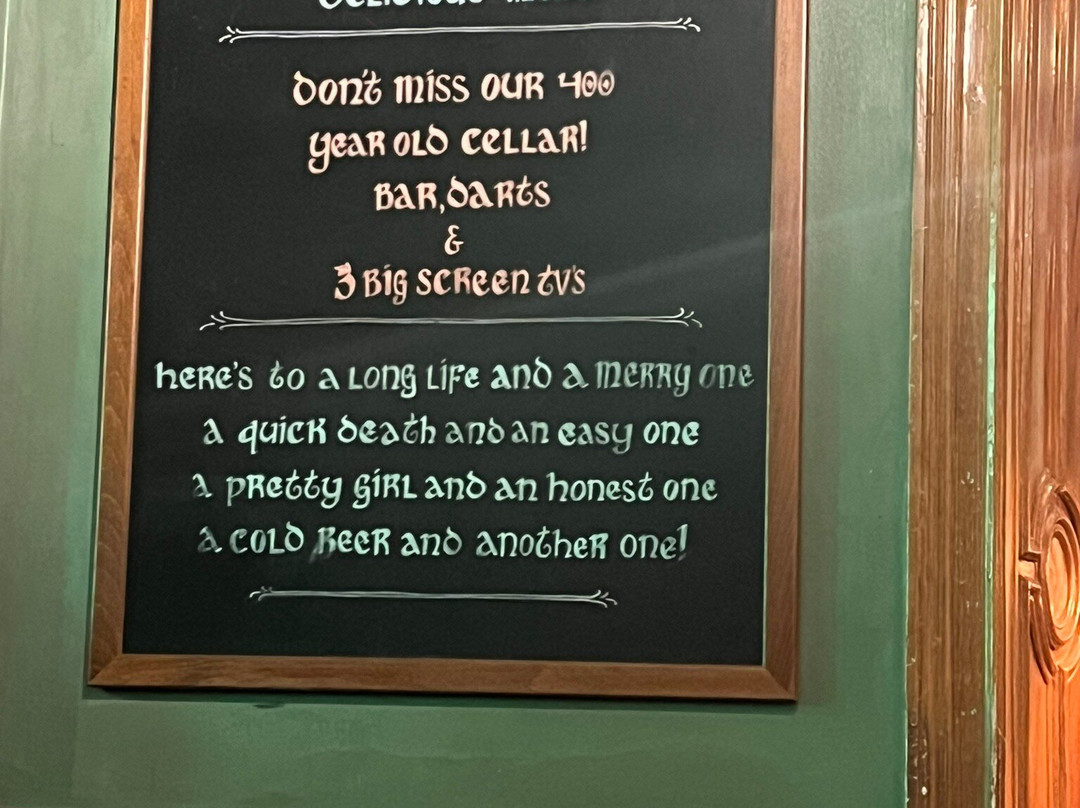 Don't miss our 400
year old cellar!
Bar, darts
&
3 Big screen tv's
here's to a long life and a merry one
a quick death and an easy one
a pretty girl and an honest one
a cold Beer and another one!